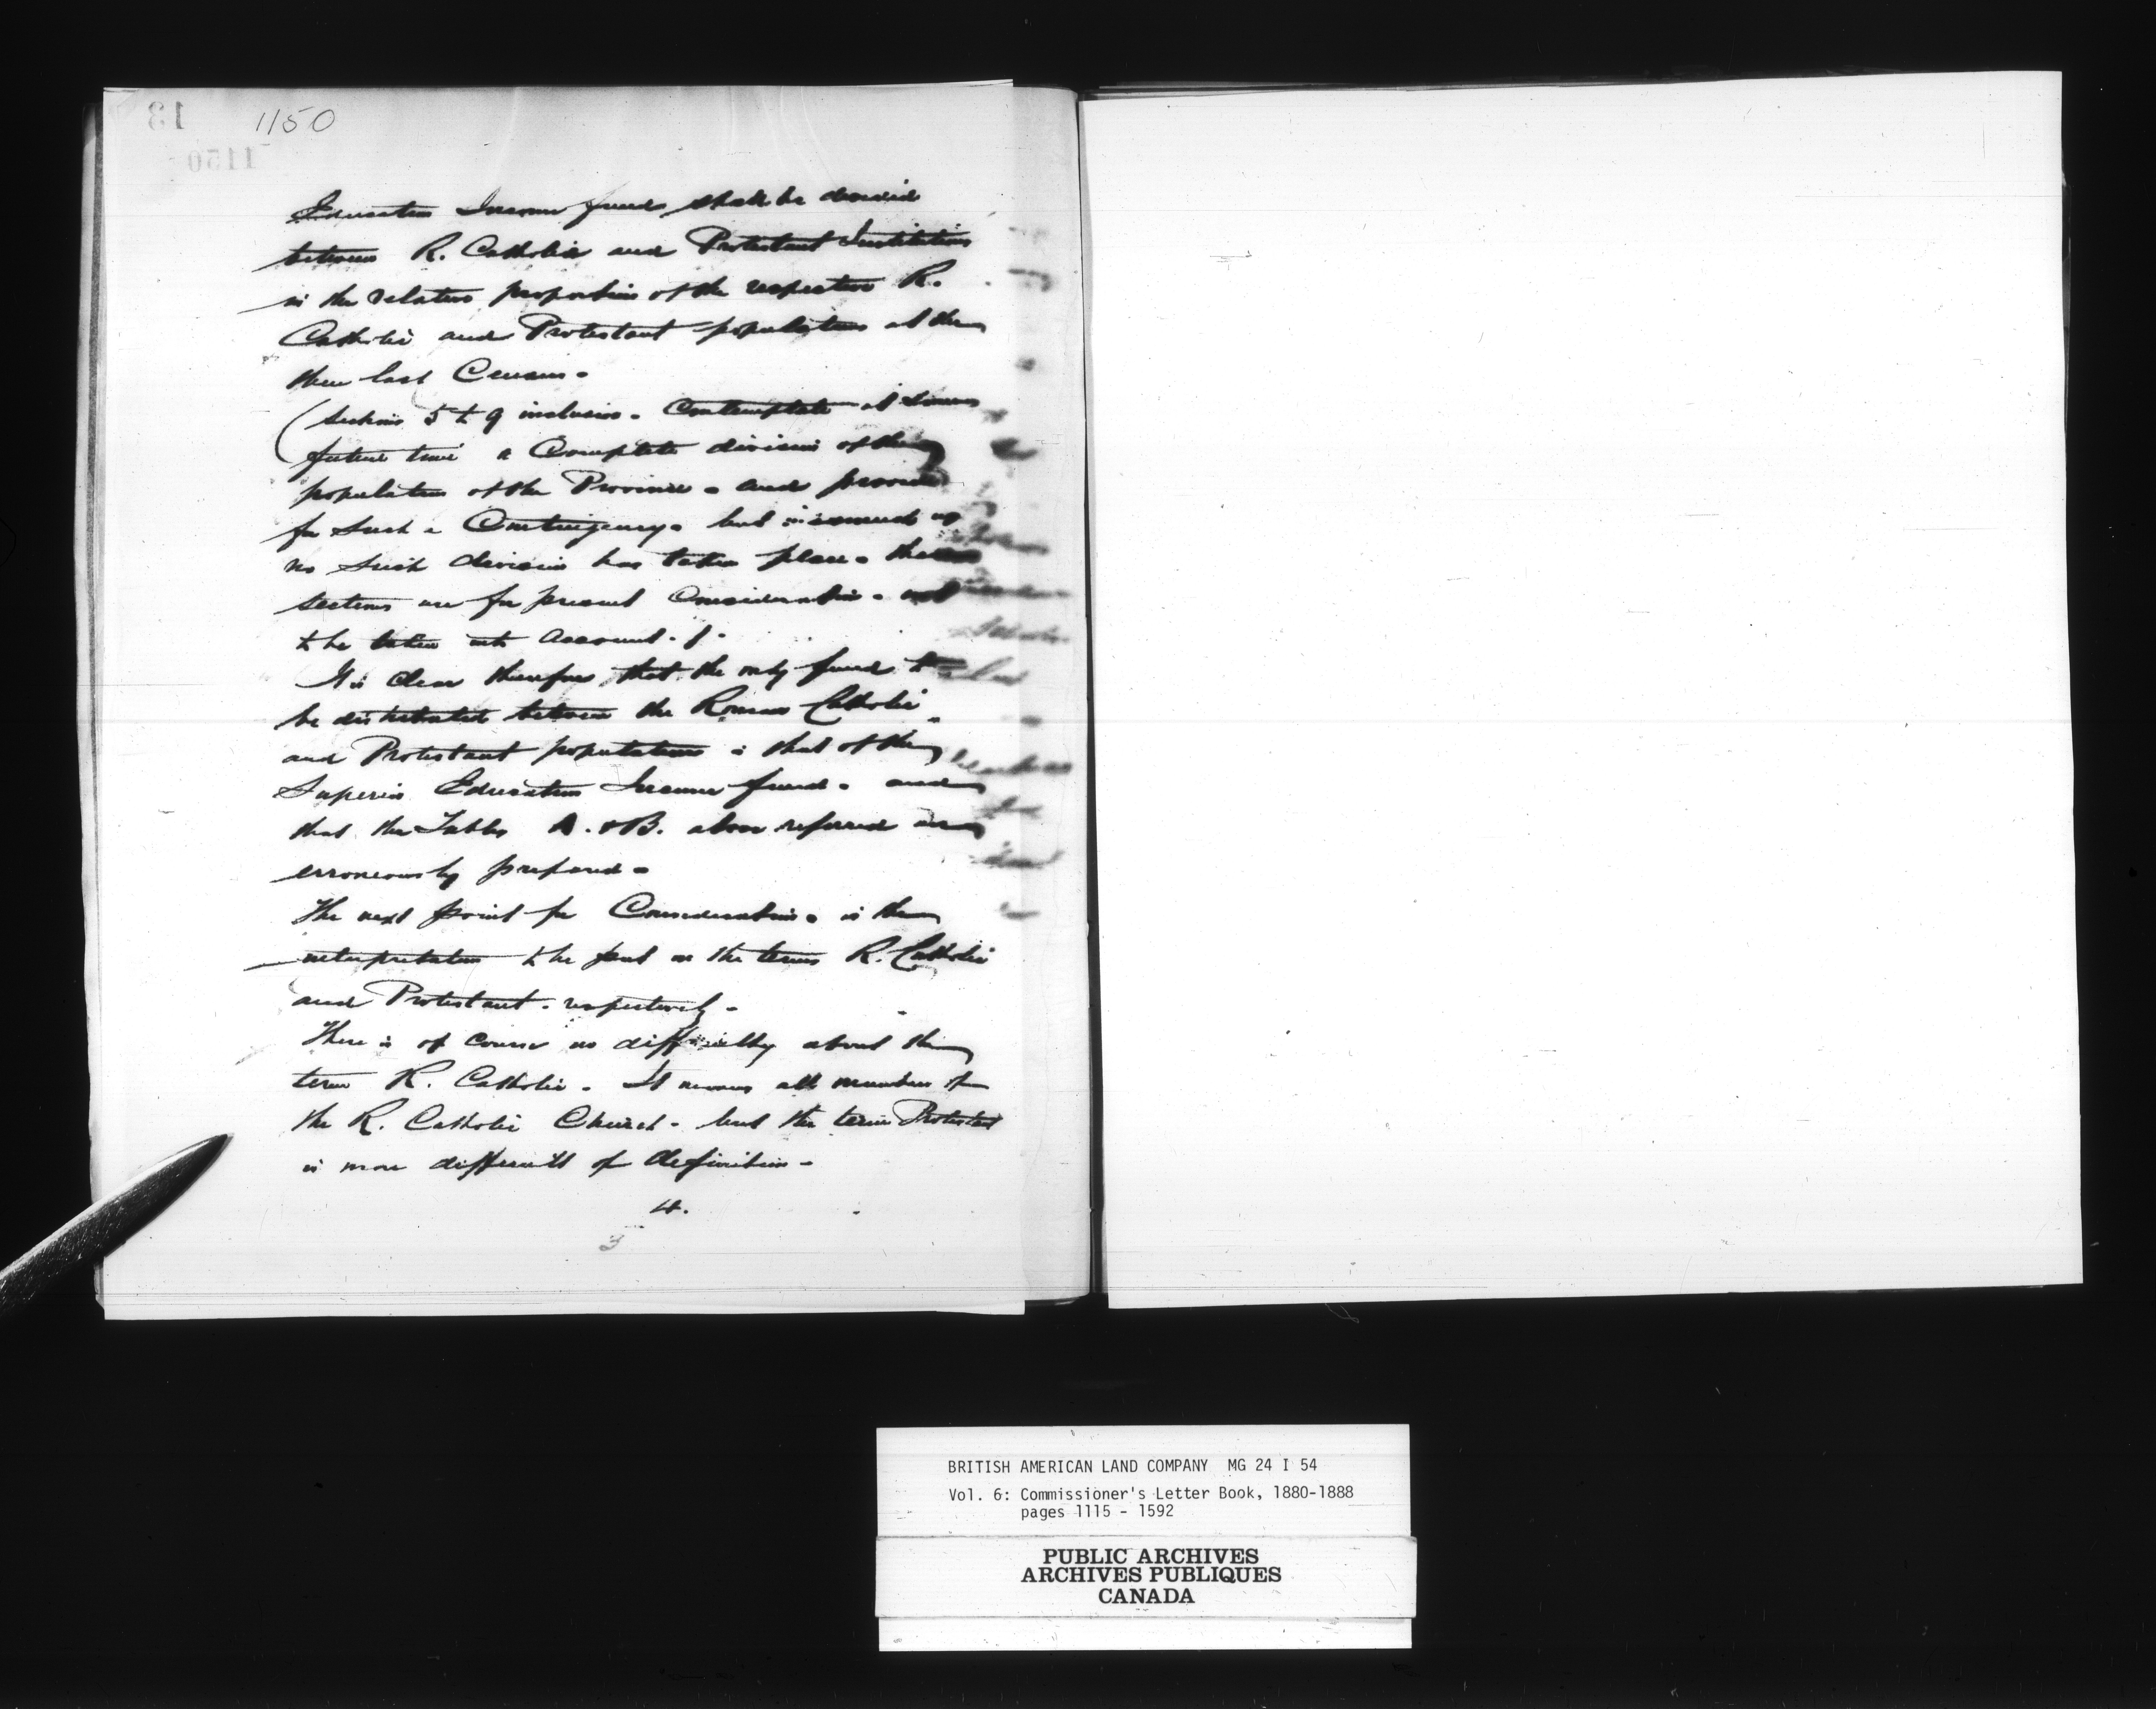 1150
Education Income fund shall be divided
between R. Catholic and Protestant Institutions
in the relative proportion of the respective R.
Catholic and Protestant populations at the
then last Census -
(Sections 5 to 9 inclusive - Contemplate at some
future time a Complete division of the
population of the Province - and provide
for such a Contingency - but inasmuch as
no such division has taken place - these
sections are for present Consideration - not
to be taken into account.).
It is clear therefore that the only fund to
be distributed between the Roman Catholic
and Protestant populations is that of the
Superior Education Income fund - and
that the Tables A. & B. above referred are
erroneously prepared -
The next point for Consideration - is the
interpretation to be put on the terms R. Catholic
and Protestant - respectively -
There is of course no difficulty about the
term R. Catholic - It means all members of
the R. Catholic Church - but the term Protestant
is more difficult of definition -
4.
3
BRITISH AMERICAN LAND COMPANY MG 24 I 54
Vol. 6: Commissioner's Letter Book, 1880-1888
pages 1115 - 1592
PUBLIC ARCHIVES
ARCHIVES PUBLIQUES
CANADA